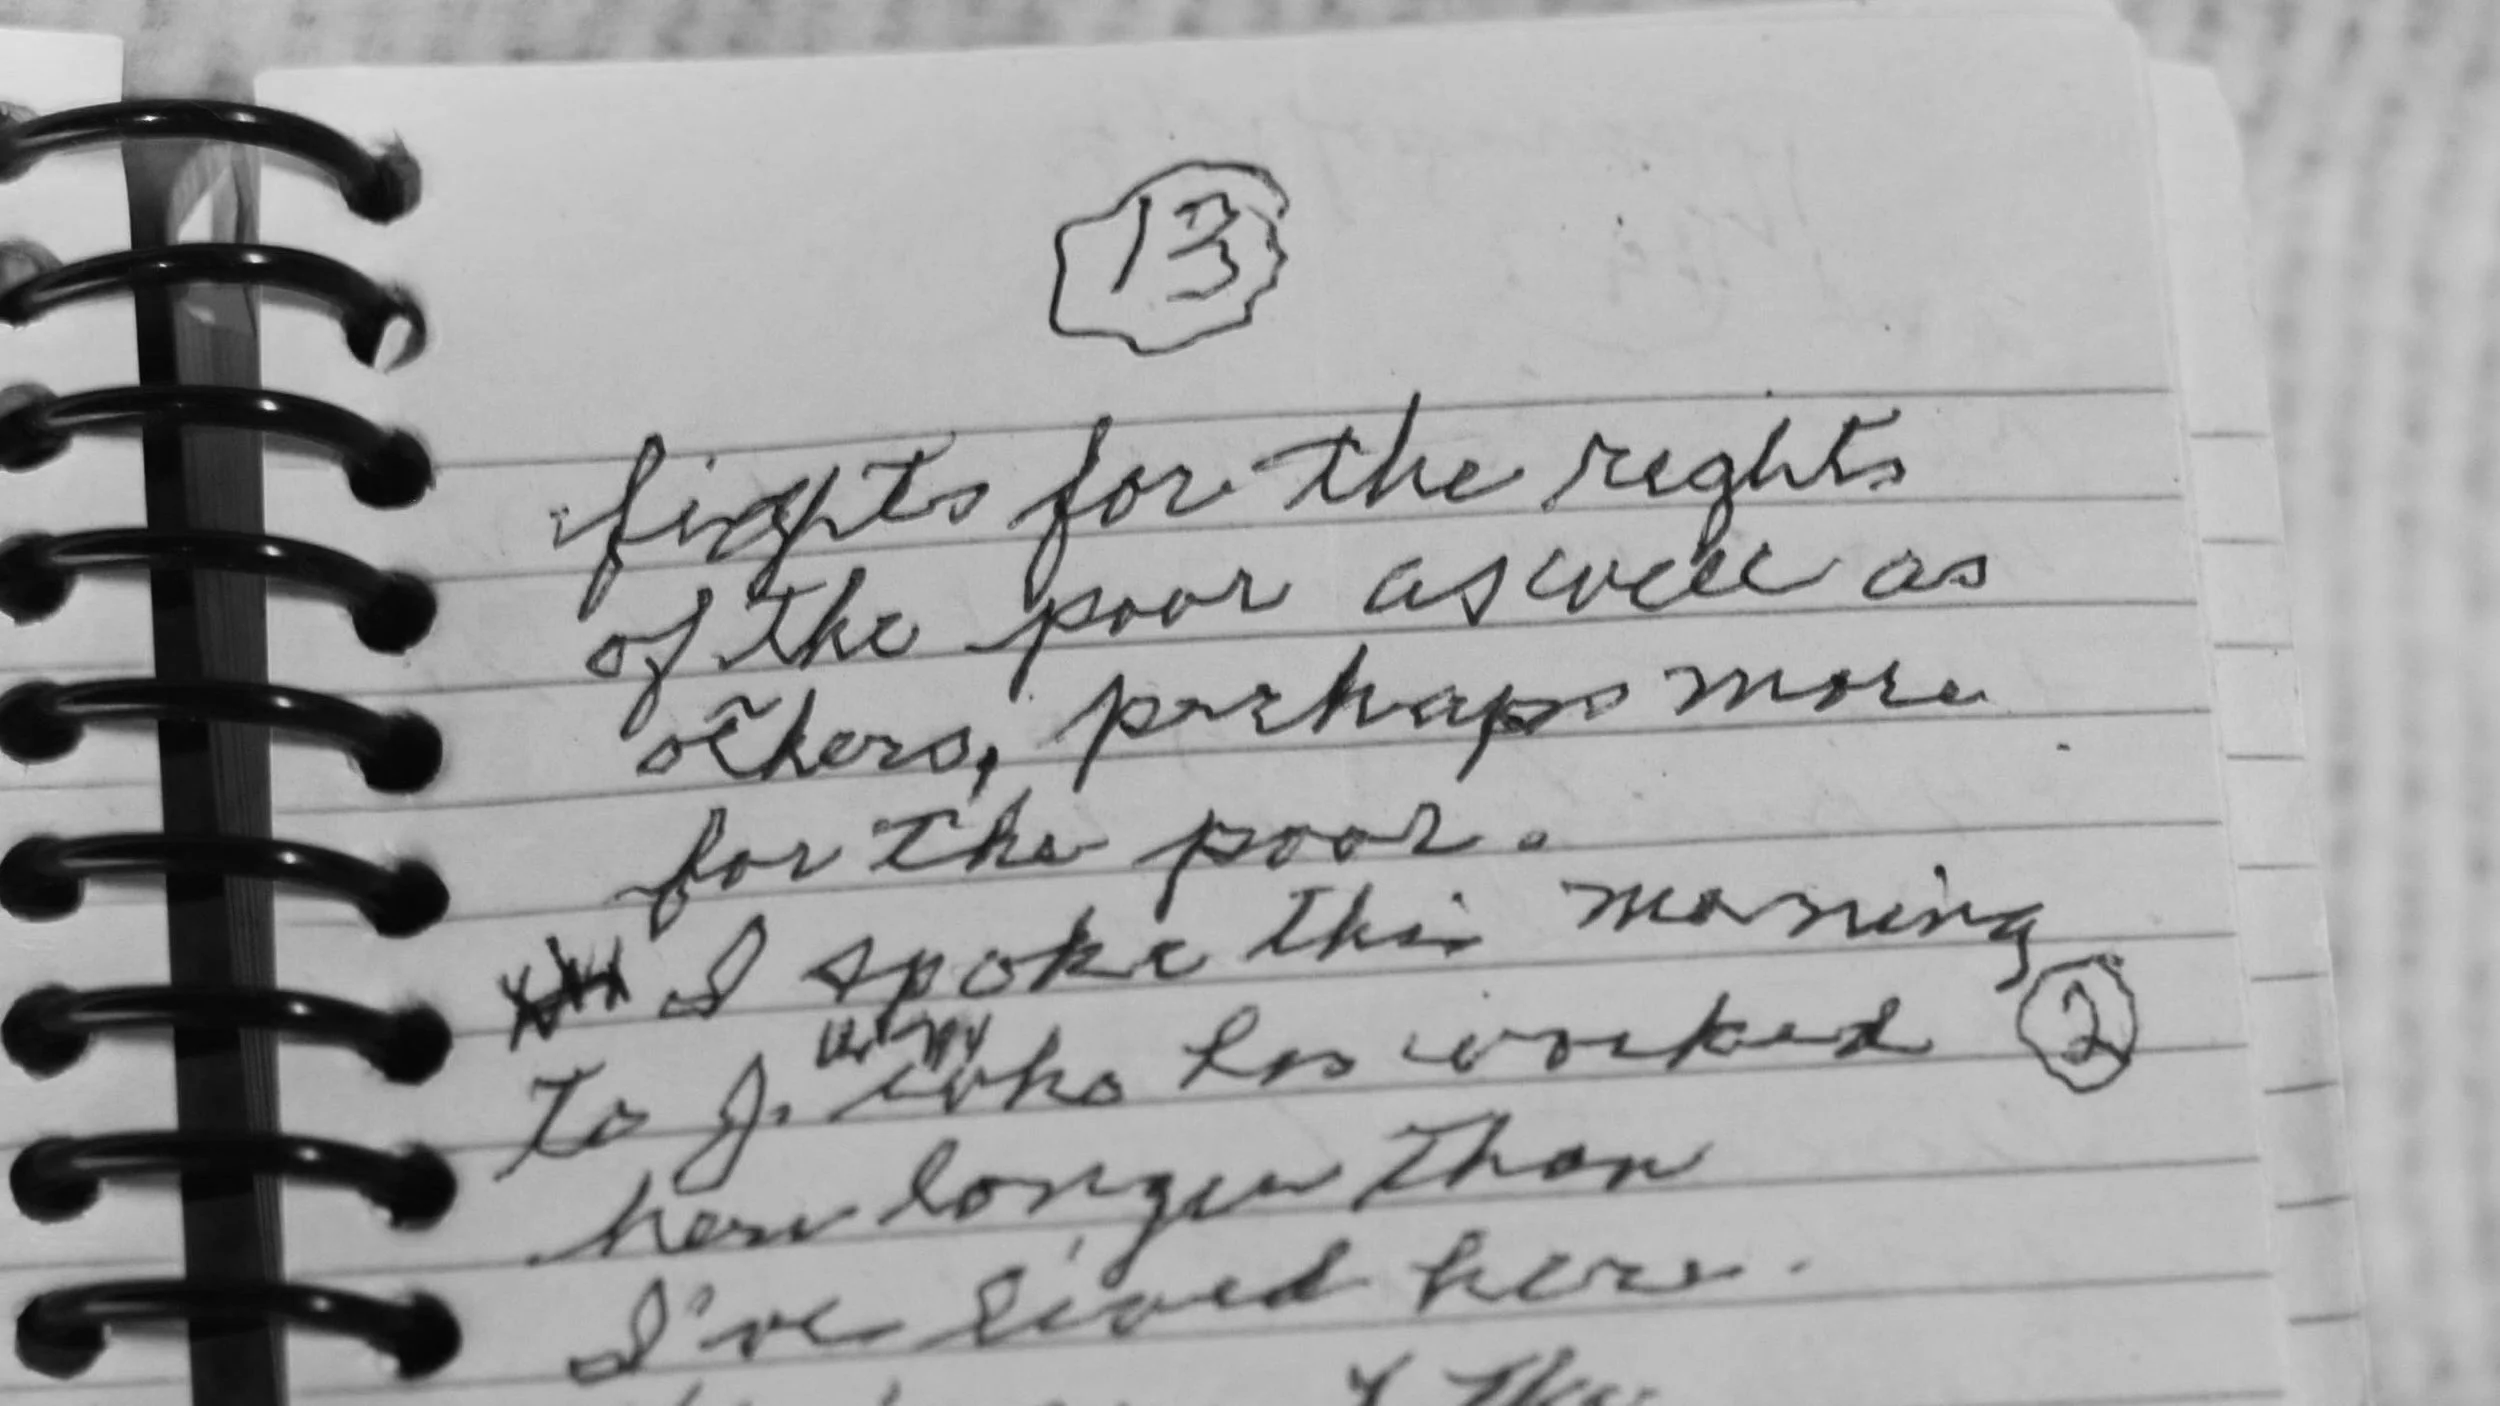 13
fights for the rights
of the poor as well as
others, perhaps more
for the poor.
I spoke this morning
to J. who has worked
2
here longer than
I've lived here.
the